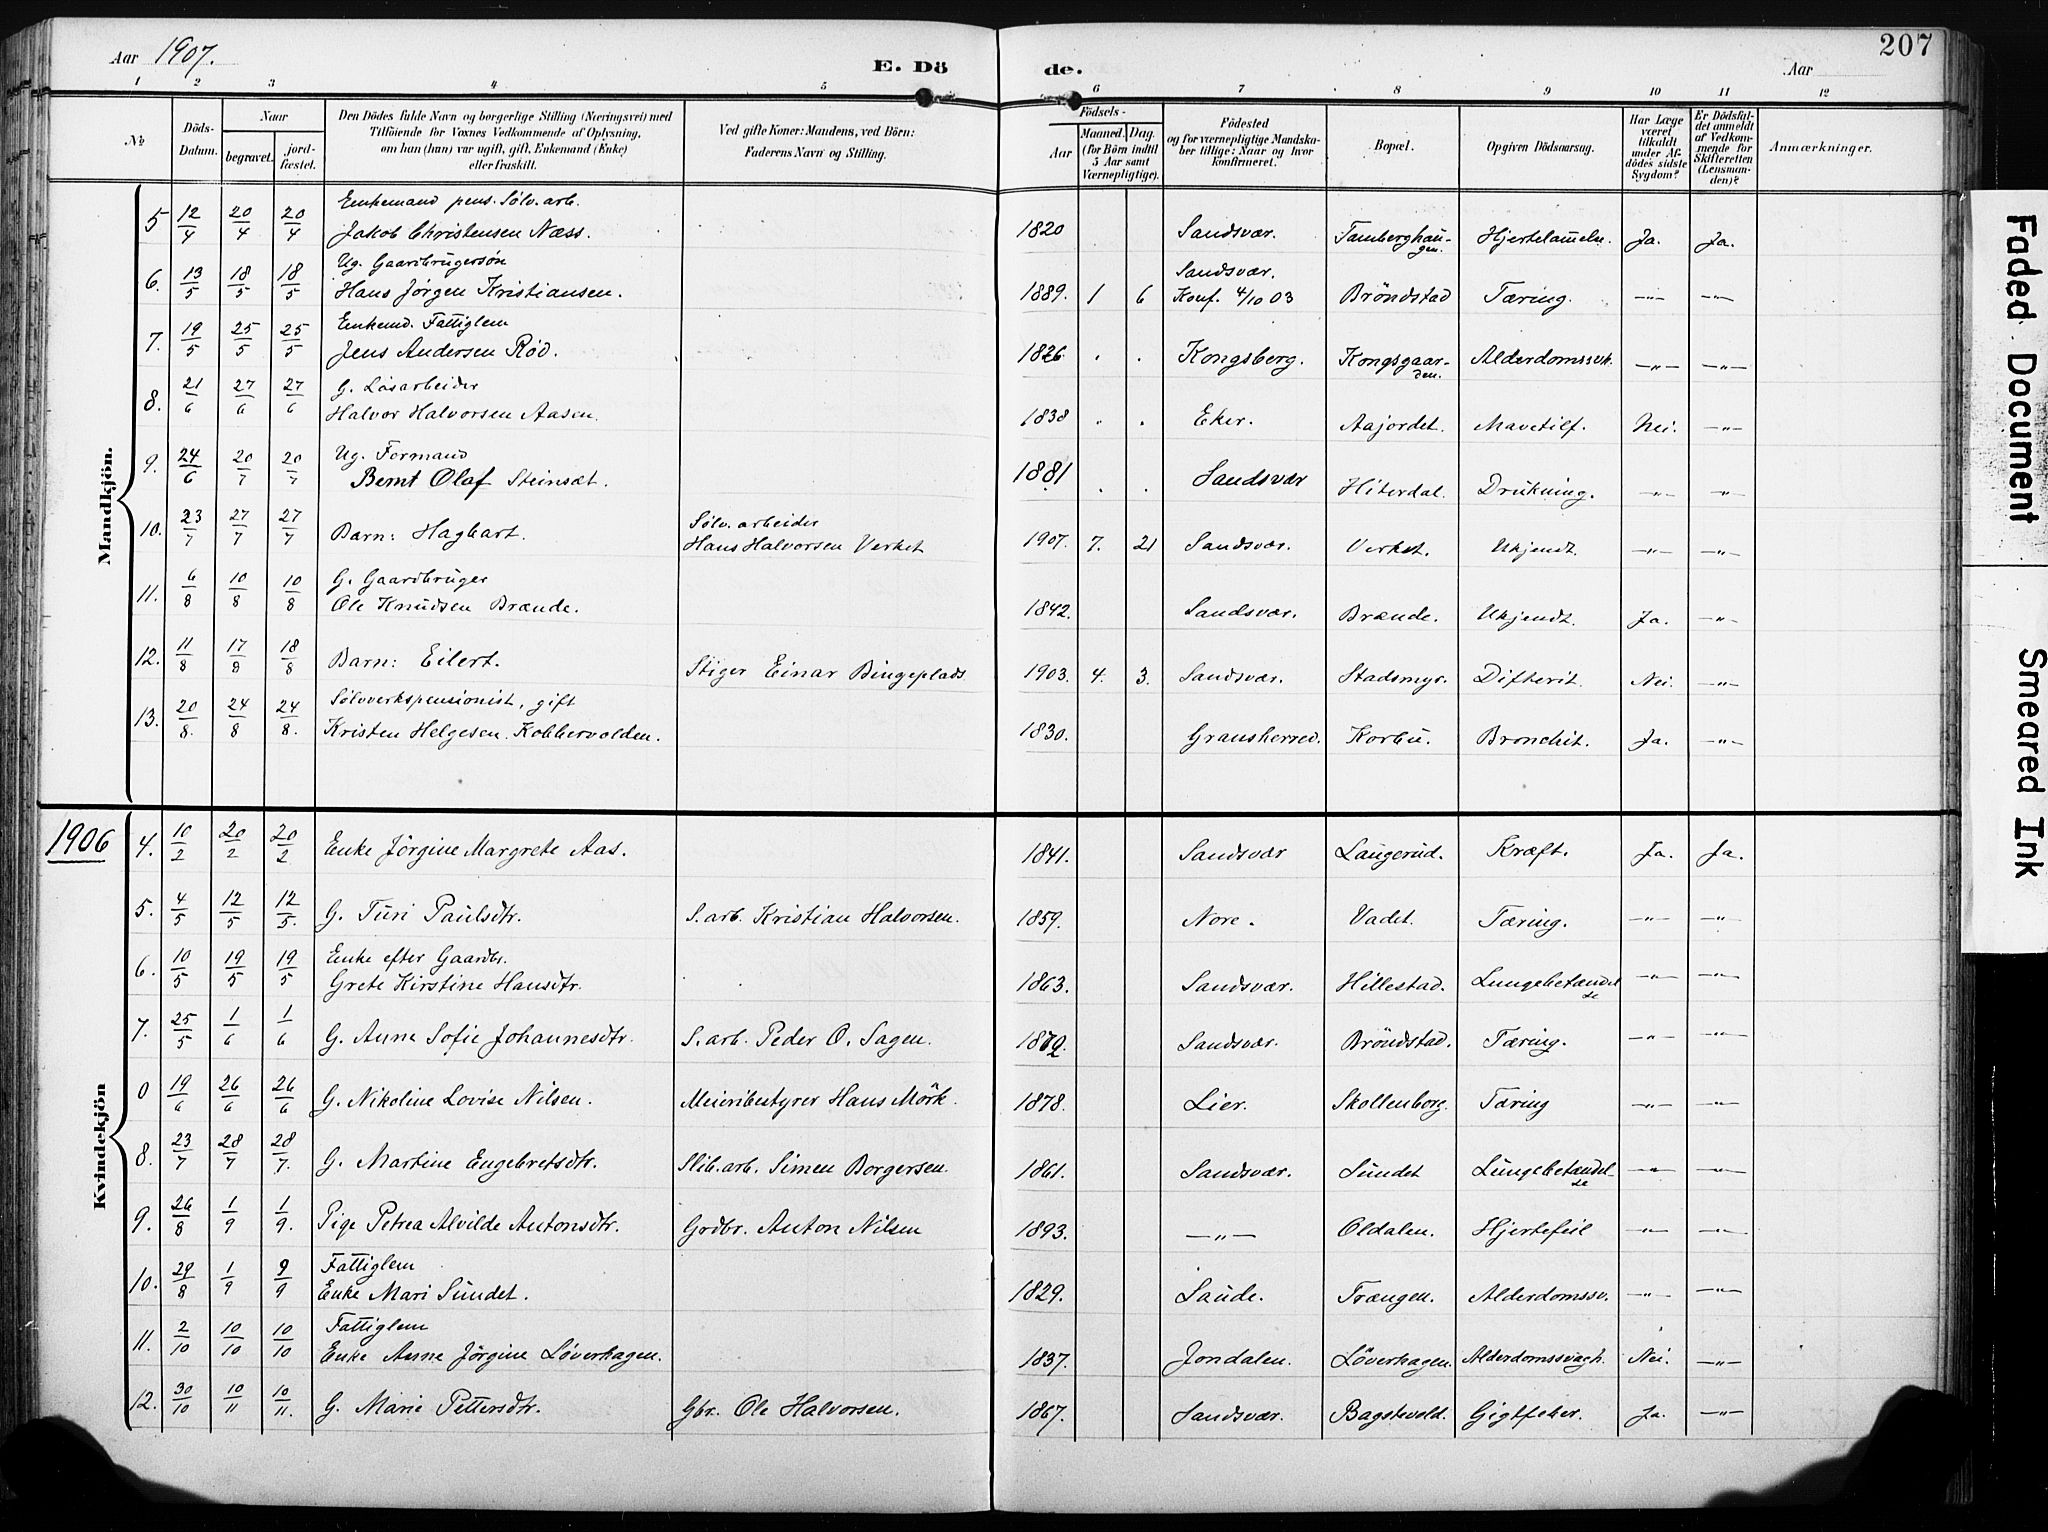 Aar 1907.
E. Dö
de.
Aar
207
1 2 3 4 5 6 7 8 9 10 11 12
№
Döds-Datum.
Naar
begravet.
jord-fæstet.
Den Dödes fulde Navn og borgerlige Stilling (Næringsvei) med
Tilföiende for Voxnes Vedkommende af Oplysning,
om han (hun) var ugift, gift, Enkemand (Enke)
eller fraskilt.
Ved gifte Koner: Mandens, ved Börn:
Faderens Navn og Stilling.
Födsels-
Aar
Maaned. Dag.
(for Börn indtil
5 Aar samt
Værnepligtige).
Födested
og for værnepligtige Mandska-
ber tillige: Naar og hvor
konfirmeret.
Bopæl.
Opgiven Dödsaarsag.
Har Læge
været
tilkaldt
under Af-
dödes sidste
Sygdom?
Er Dödsfal-
det anmeldt
af Vedkom-
mende for
Skifteretten
(Lensman-
den)?
Anmærkninger.
Mandkjön.
5 12/4 20/4 20/4 Enkemand pens. Sølv.arb.
Jakob Christensen Næss. 1820 Sandsvær. Tamberghau-
gen. Hjertelammelse. Ja. Ja.
6. 13/5 18/5 18/5 Ug. Gaardbrugersøn
Hans Jørgen Kristiansen. 1889. 1 6 Sandsvær.
Konf. 4/10 03 Bröndstad Tæring. —"— —"—
7. 19/5 25/5 25/5 Enkemd. Fattiglem
Jens Andersen Rød. 1826 . . Kongsberg. Kongsgaar-
den. Alderdomssvk. —"— —"—
8. 21/6 27/6 27/6 G. Løsarbeider
Halvor Halvorsen Aasen. 1838 . . Eker. Aajordet. Mavetilf. Nei. —"—
9. 24/6 20/7 20/7 Ug. Formand
Bernt Olaf Steinsæt. 1881 . . Sandsvær Hiterdal. Drukning. —"— —"—
10. 23/7 27/7 27/7 Barn: Hagbart. Sølv.arbeider
Hans Halvorsen Verket 1907. 7. 21 Sandsvær. Verket. Ukjendt. —"— —"—
11. 6/8 10/8 10/8 G. Gaardbruger
Ole Knudsen Brænde. 1842. Sandsvær. Brænde. Ukjendt. Ja. —"—
12. 11/8 17/8 18/8 Barn: Eilert. Stiger Einar Bingeplads 1903. 4. 3. Sandsvær. Stadsmyr. Difterit. Nei. —"—
13. 20/8. 24/8 24/8. Sølvverkspensionist, gift
Kristen Helgesen Kobbervolden. 1830. Gransherred. Korbu. Bronchit. Ja. —"—
1906
Kvindekjön
4. 10/2 20/2 20/2 Enke Jørgine Margrete Aas. 1841. Sandsvær Laugerud. Kræft. Ja. Ja.
5. 4/5 12/5 12/5. G. Turi Paulsdtr. S.arb. Kristian Halvorsen. 1859. Nore. Vadet. Tæring. —"— —"—
6. 10/5 19/5 19/5 Enke efter Gaardbr.
Grete Kirstine Hansdtr. 1863. Sandsvær. Hillestad. Lungebetændel
se —"— —"—
7. 25/5 1/6 1/6 G. Anne Sofie Johannesdtr. S.arb. Peder O. Sagen. 1872. Sandsvær. Bröndstad. Tæring. —"— —"—
0 19/6 26/6 26/6 G. Nikoline Lovise Nilsen. Meieribestyrer Hans Mörk. 1878. Lier. Skollenborg. Tæring —"— —"—
8. 23/7 28/7 28/7. G. Martine Engebretsdtr. Slib.arb. Simen Borgersen. 1861. Sandsvær. Sundet Lungebetændel-
se —"— —"—
9. 26/8 1/9 1/9. Pige Petrea Alvilde Antonsdtr. Grdbr. Anton Nilsen 1893. —"— Oldalen. Hjertefeil —"— —"—
10. 29/8 1/9 9/9 Fattiglem
Enke Mari Sundet. 1829. Saude. Trængen. Alderdomssv. —"— —"—
11. 2/10 10/10 10/10 Fattiglem
Enke Anne Jörgine Løverhagen. 1837. Jondalen. Löverhagen. Alderdomssvagh. Nei. —"—
12. 30/10 10/11 10/11. G. Marie Pettersdtr. Gbr. Ole Halvorsen. 1867. Sandsvær. Bagstevold. Gigtfeber. Ja. —"—
Faded Document
Smeared Ink